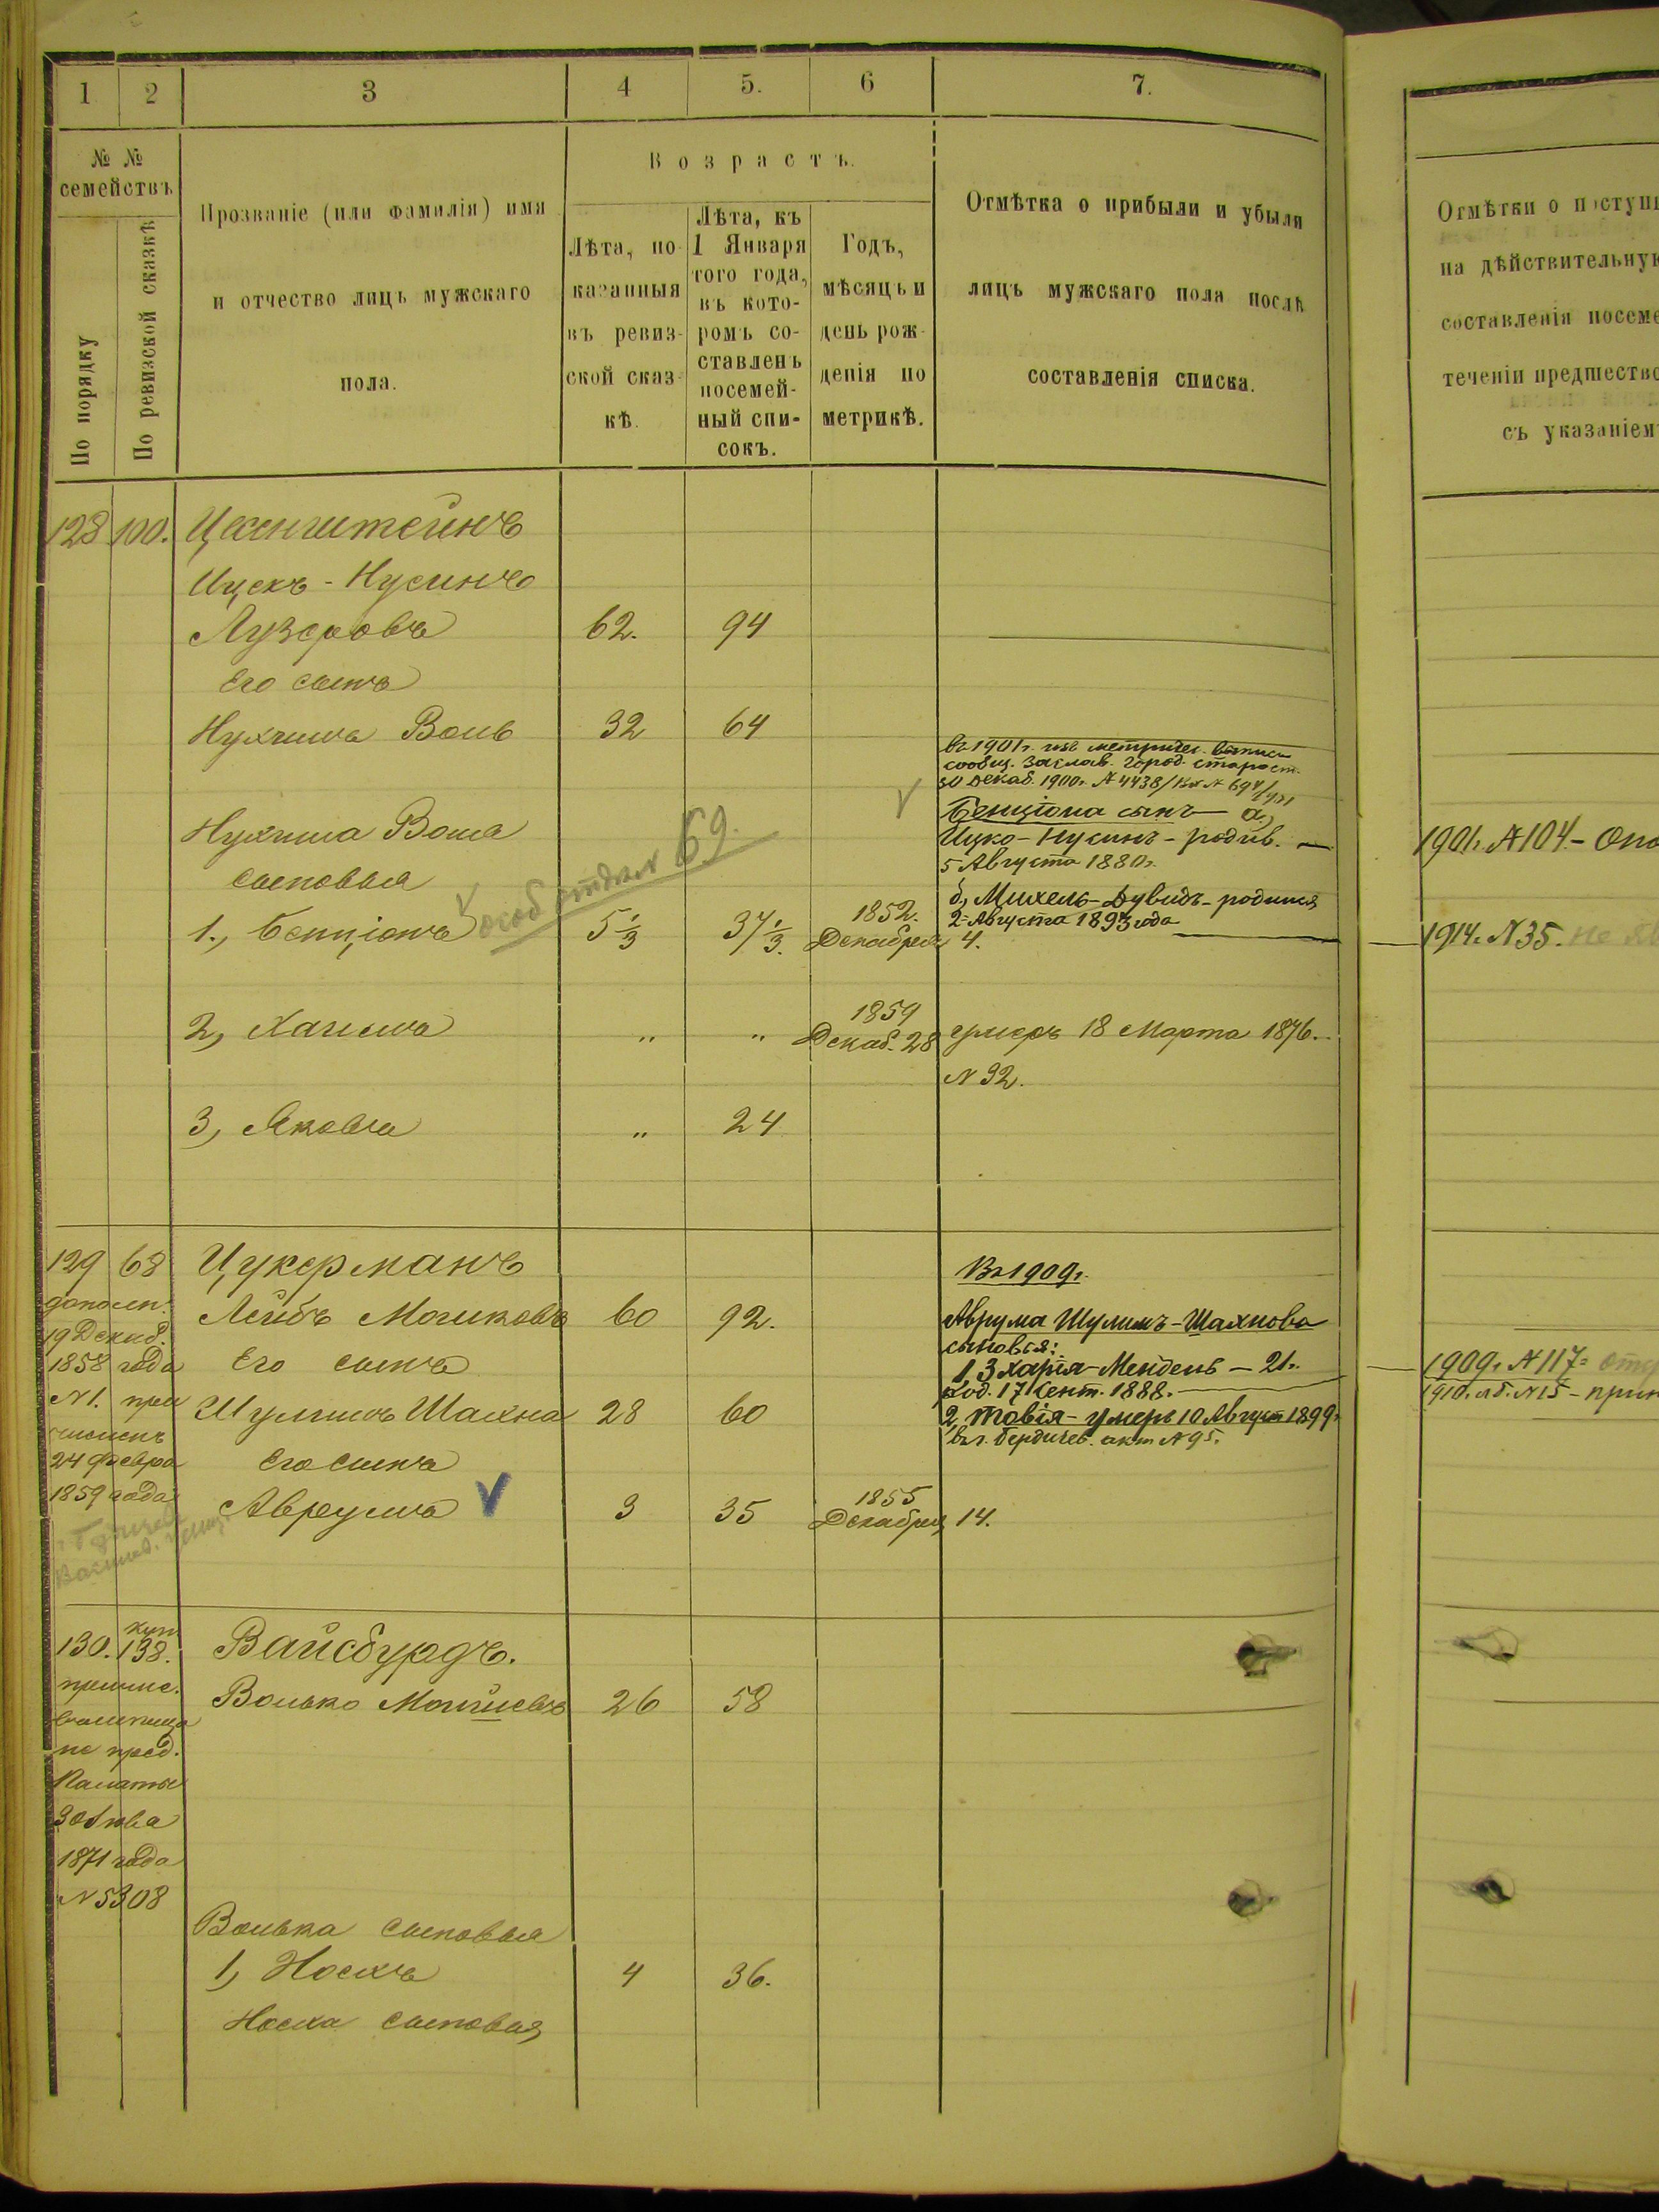 1 2 3 4 5. 6 7.
№ № семействъ
По порядку
По ревизской сказкѣ
Прозваніе (или фамилія) имя
и отчество лицъ мужскаго
пола.
Возрастъ.
Лѣта, по-
казанныя
въ ревиз-
ской сказ-
кѣ.
Лѣта, къ
1 Января
того года,
въ кото-
ромъ со-
ставленъ
посемей-
ный спи-
сокъ.
Годъ,
мѣсяцъ и
день рож-
денія по
метрикѣ.
Отмѣтка о прибыли и убыли
лицъ мужскаго пола послѣ
составленія списка.
128 100.
Ицекъ - Нусинъ
Лузеровъ 62. 94
Его сынъ
Нухимъ Воль 32 64
въ 1901 г. изъ метричес. выписи
сообщ. Заслав. город. старост.
30 Декаб. 1900 г. № 4438
Бенціона сынъ а,
Ицко-Нусинъ - родив.
5 Августа 1880 г.
б, Михель-Дувидъ - родился
2 Августа 1893 года
Нухима Воля
сыновья
особ отдел № 69.
1., Бенціонъ 5 1/3 37 1/3. 1852. Декабря 4.
2, Хаимъ " " 1859 Декаб. 28 умеръ 18 Марта 1876.
№ 32.
3, Яковъ " 24
129 68 Цукерманъ
дополн.
19 Декаб.
1858 года
№ 1. при
численъ
24 Февра
1859 года
Лейбъ Мошковъ 60 92.
Его сынъ
Шулимъ Шахна 28 60
Его сынъ
Аврумъ 3 35 1855 Декабря 14.
Въ 1909 г.
Аврума Шулимъ-Шахнова
сыновья:
1 Зхарія-Мендель - 21 г.
род. 17 Сент. 1888.
2, Товія - умеръ 10 Август 1899 г.
въ г. Бердичев. акт № 95.
130. куп. 138. Вайсбурдъ.
припис.
по пред.
Палаты
30 Іюля
1871 года
№ 5308
Волько Мошковъ 26 58
Волька сыновья
1, Носихъ 4 36.
Носиха сыновья
Отмѣтки о поступ
на дѣйствительную
составленія посеме
теченіи предшество
съ указаніем
1901 г. № 104 -
1914 г. № 35. не яв
1909 г. № 117 -
1910. № 15 - прин